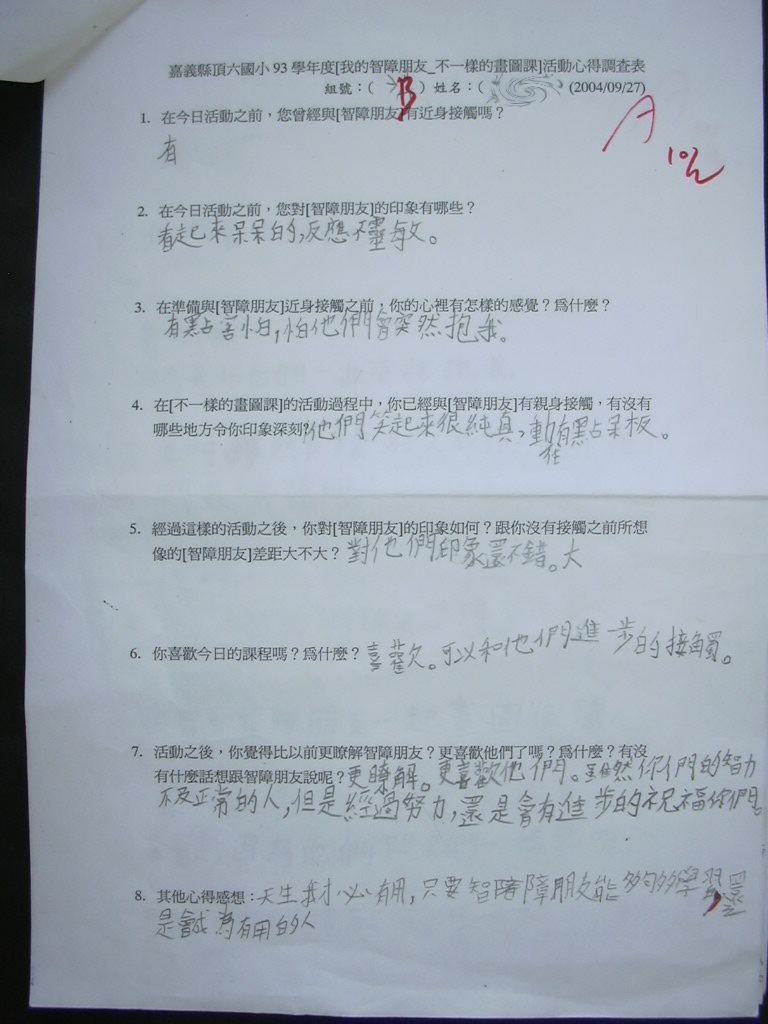 嘉義縣頂六國小93學年度[我的智障朋友_不一樣的畫圖課]活動心得調查表
組號：( B ) 姓名：( (2004/09/27)
A
1. 在今日活動之前，您曾經與[智障朋友]有近身接觸嗎？
有
2. 在今日活動之前，您對[智障朋友]的印象有哪些？
看起來呆呆的,反應不靈敏。
3. 在準備與[智障朋友]近身接觸之前，你的心裡有怎樣的感覺？爲什麼？
有點害怕,怕他們會突然抱我。
4. 在[不一樣的畫圖課]的活動過程中，你已經與[智障朋友]有親身接觸，有沒有
哪些地方令你印象深刻?他們笑起來很純真,動作有點呆板。
5. 經過這樣的活動之後，你對[智障朋友]的印象如何？跟你沒有接觸之前所想
像的[智障朋友]差距大不大？對他們印象還不錯。大
6. 你喜歡今日的課程嗎？爲什麼？喜歡。可以和他們進一步的接觸。
7. 活動之後，你覺得比以前更瞭解智障朋友？更喜歡他們了嗎？爲什麼？有沒
有什麼話想跟智障朋友說呢？更瞭解。更喜歡他們。雖然你們的智力
不及正常的人,但是經過努力,還是會有進步的祝福你們。
8. 其他心得感想：天生我才必有用,只要智障朋友能夠多學習,還
是會成為有用的人